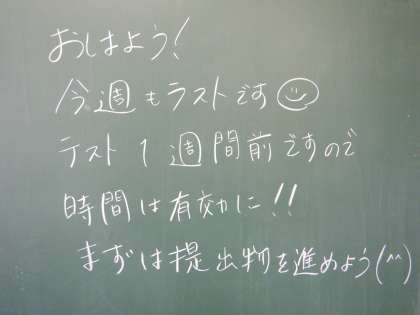 おはよう!
今週もラストです☺
テスト1週間前ですので
時間は有効に!!
まずは提出物を進めよう(^^)